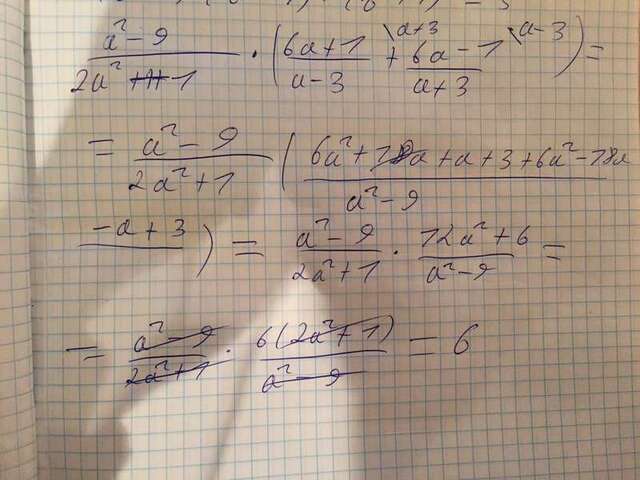 a² - 9 / 2a² + 1 · ( 6a+1 / a-3 \a+3 + 6a - 1 / a+3 \a-3 ) =
= a² - 9 / 2a² + 1 ( 6a² + 18a + a + 3 + 6a² - 18a / a² - 9
- a + 3 ) = a² - 9 / 2a² + 1 · 12a² + 6 / a² - 9 =
= a² - 9 / 2a² + 1 · 6(2a² + 1) / a² - 9 = 6